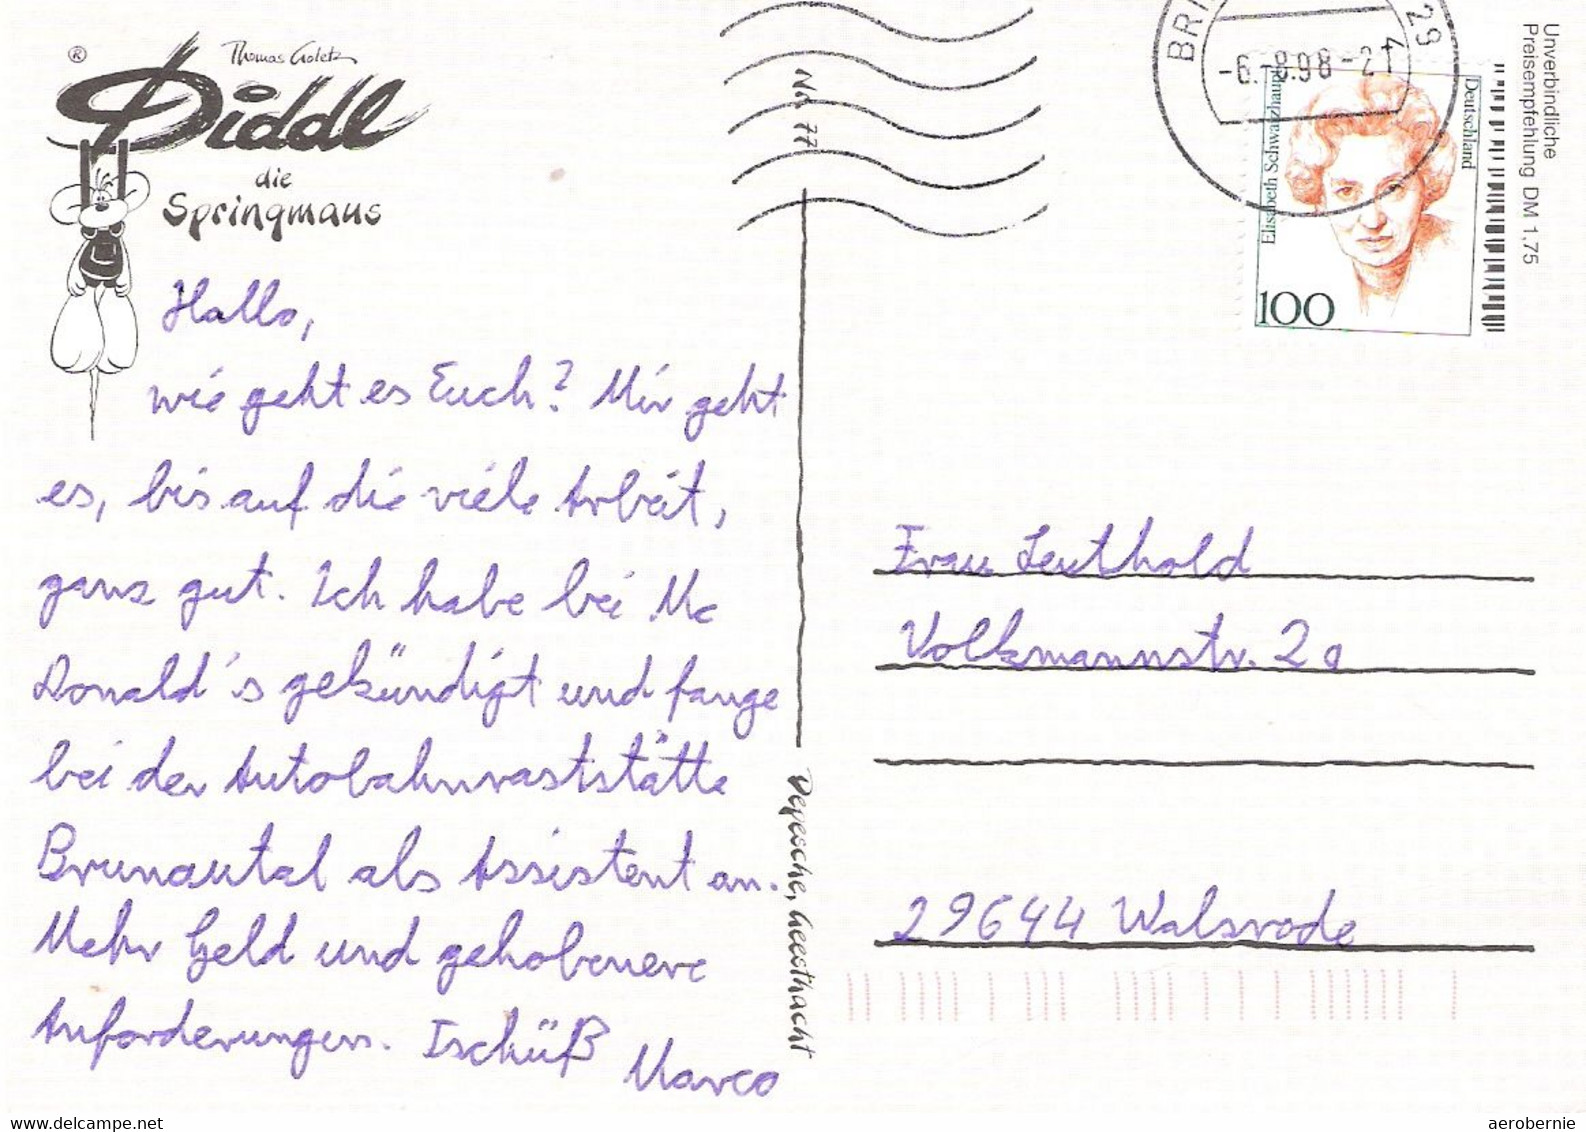 ® Thomas Goletz
Diddl
die
Springmaus
Hallo,
wie geht es Euch? Mir geht
es, bis auf die viele Arbeit,
ganz gut. Ich habe bei Mc
Donald's gekündigt und fange
bei der Autobahnraststätte
Brunautal als Assistent an.
Mehr Geld und gehobenere
Anforderungen. Tschüß
Marco
No. 77
Depesche, Geesthacht
BRI
29
-6.-8.98-21
4
Deutschland
Elisabeth Schwarzhaupt
100
Unverbindliche
Preisempfehlung DM 1,75
Frau Leuthold
Volkmannstr. 2a
29644 Walsrode
www.delcampe.net
aerobernie